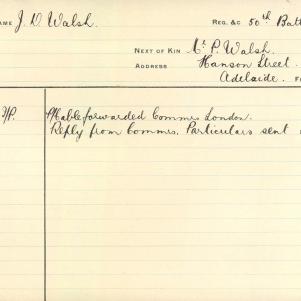 NAME J. D. Walsh. REG. &c 50th Batt
NEXT OF KIN Mr. P. Walsh.
ADDRESS Hanson Street.
Adelaide.
Cable forwarded Commrs London.
Reply from Commrs. Particulars sent